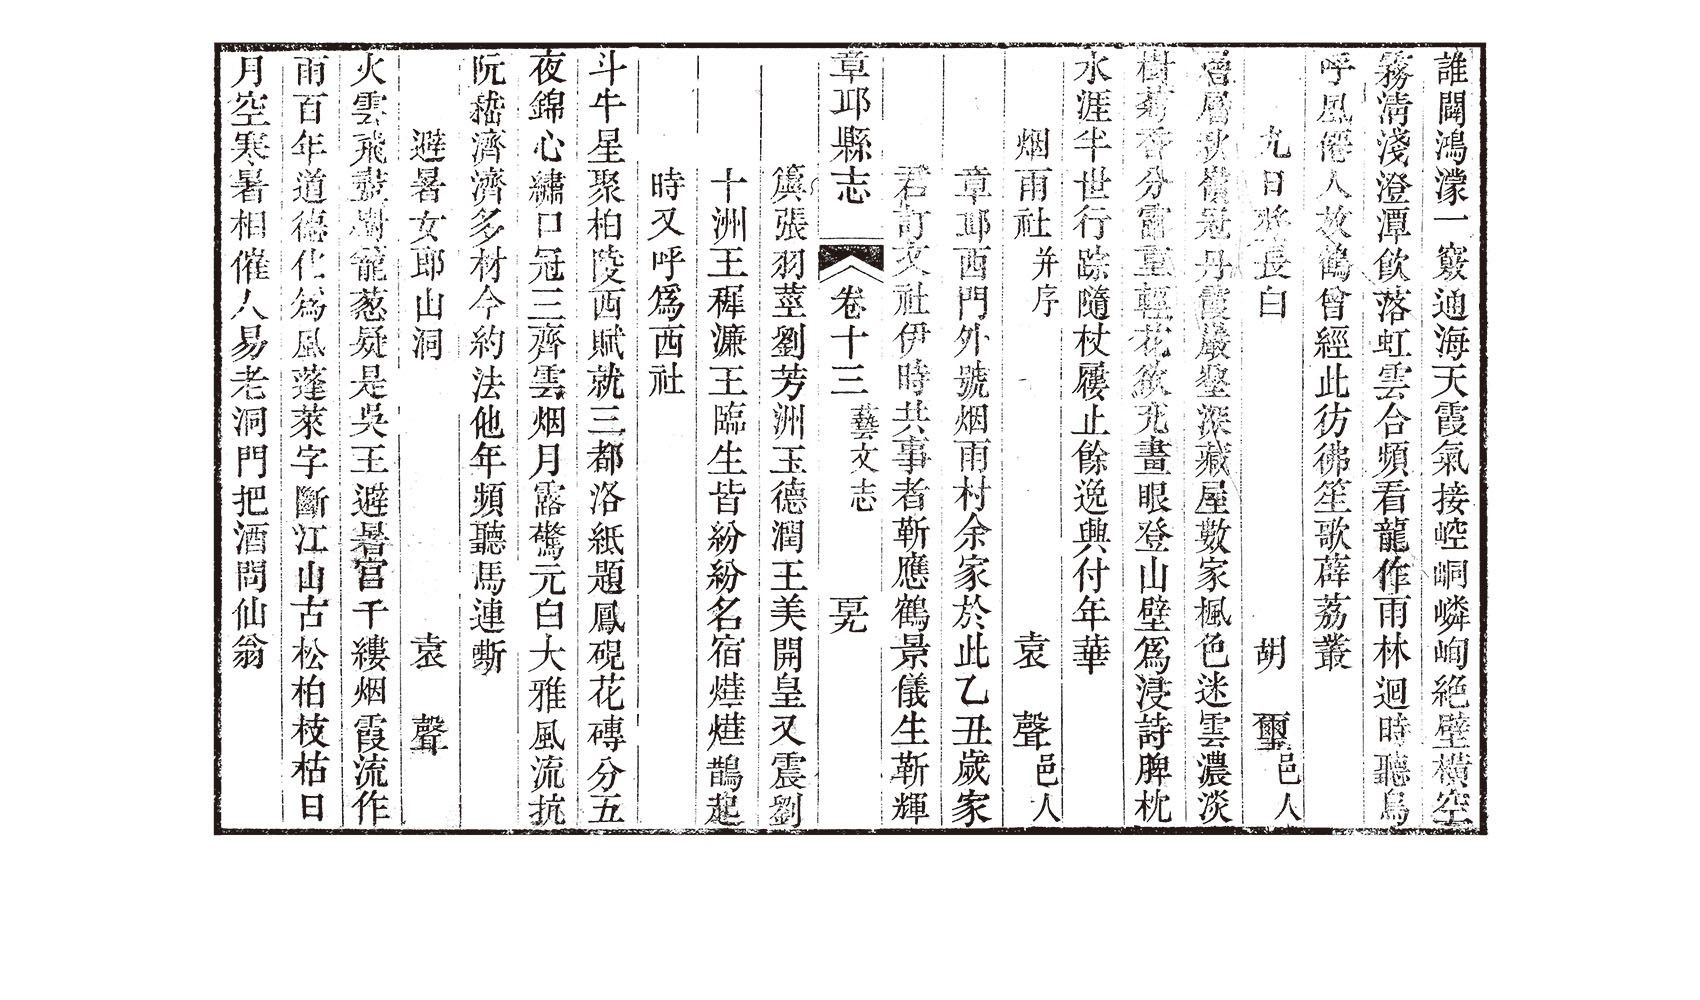 誰闢鴻濛一竅通海天霞氣接崆峒嶙峋絶壁横空
霧清淺澄潭飲落虹雲台頻看龍作雨林迴時聽鳥
呼風僊人放鶴曾經此彷彿笙歌薜荔叢
九日登長白 胡璽邑人
層層秋嶺冠丹霞巖壑深藏屋數家楓色迷雲濃淡
樹菊香分露重輕花欲充畫眼登山壁爲浸詩脾枕
水涯半世行踪隨杖屨止餘逸興付年華
烟雨社并序 袁聲邑人
章邱西門外號烟雨村余家於此乙丑歲家
君訂文社伊時共事者靳應鶴景儀生靳輝
章邱縣志 卷十三 藝文志
簴張羽莖劉芳洲玉德潤王美開皇又震劉
十洲王稺濂王臨生皆紛紛名宿煒燁鵲起
時又呼爲西社
斗牛星聚柏陵西賦就三都洛紙題鳳硯花磚分五
夜錦心繡口冠三齊雲烟月露驚元白大雅風流抗
阮嵇濟濟多材今約法他年頻聽馬連嘶
避暑女郎山洞 袁聲
火雲飛盡樹籠葱疑是吳王避暑宫千縷烟霞流作
雨百年道德化爲風蓬萊字斷江山古松柏枝枯日
月空寒暑相催人易老洞門把酒問仙翁